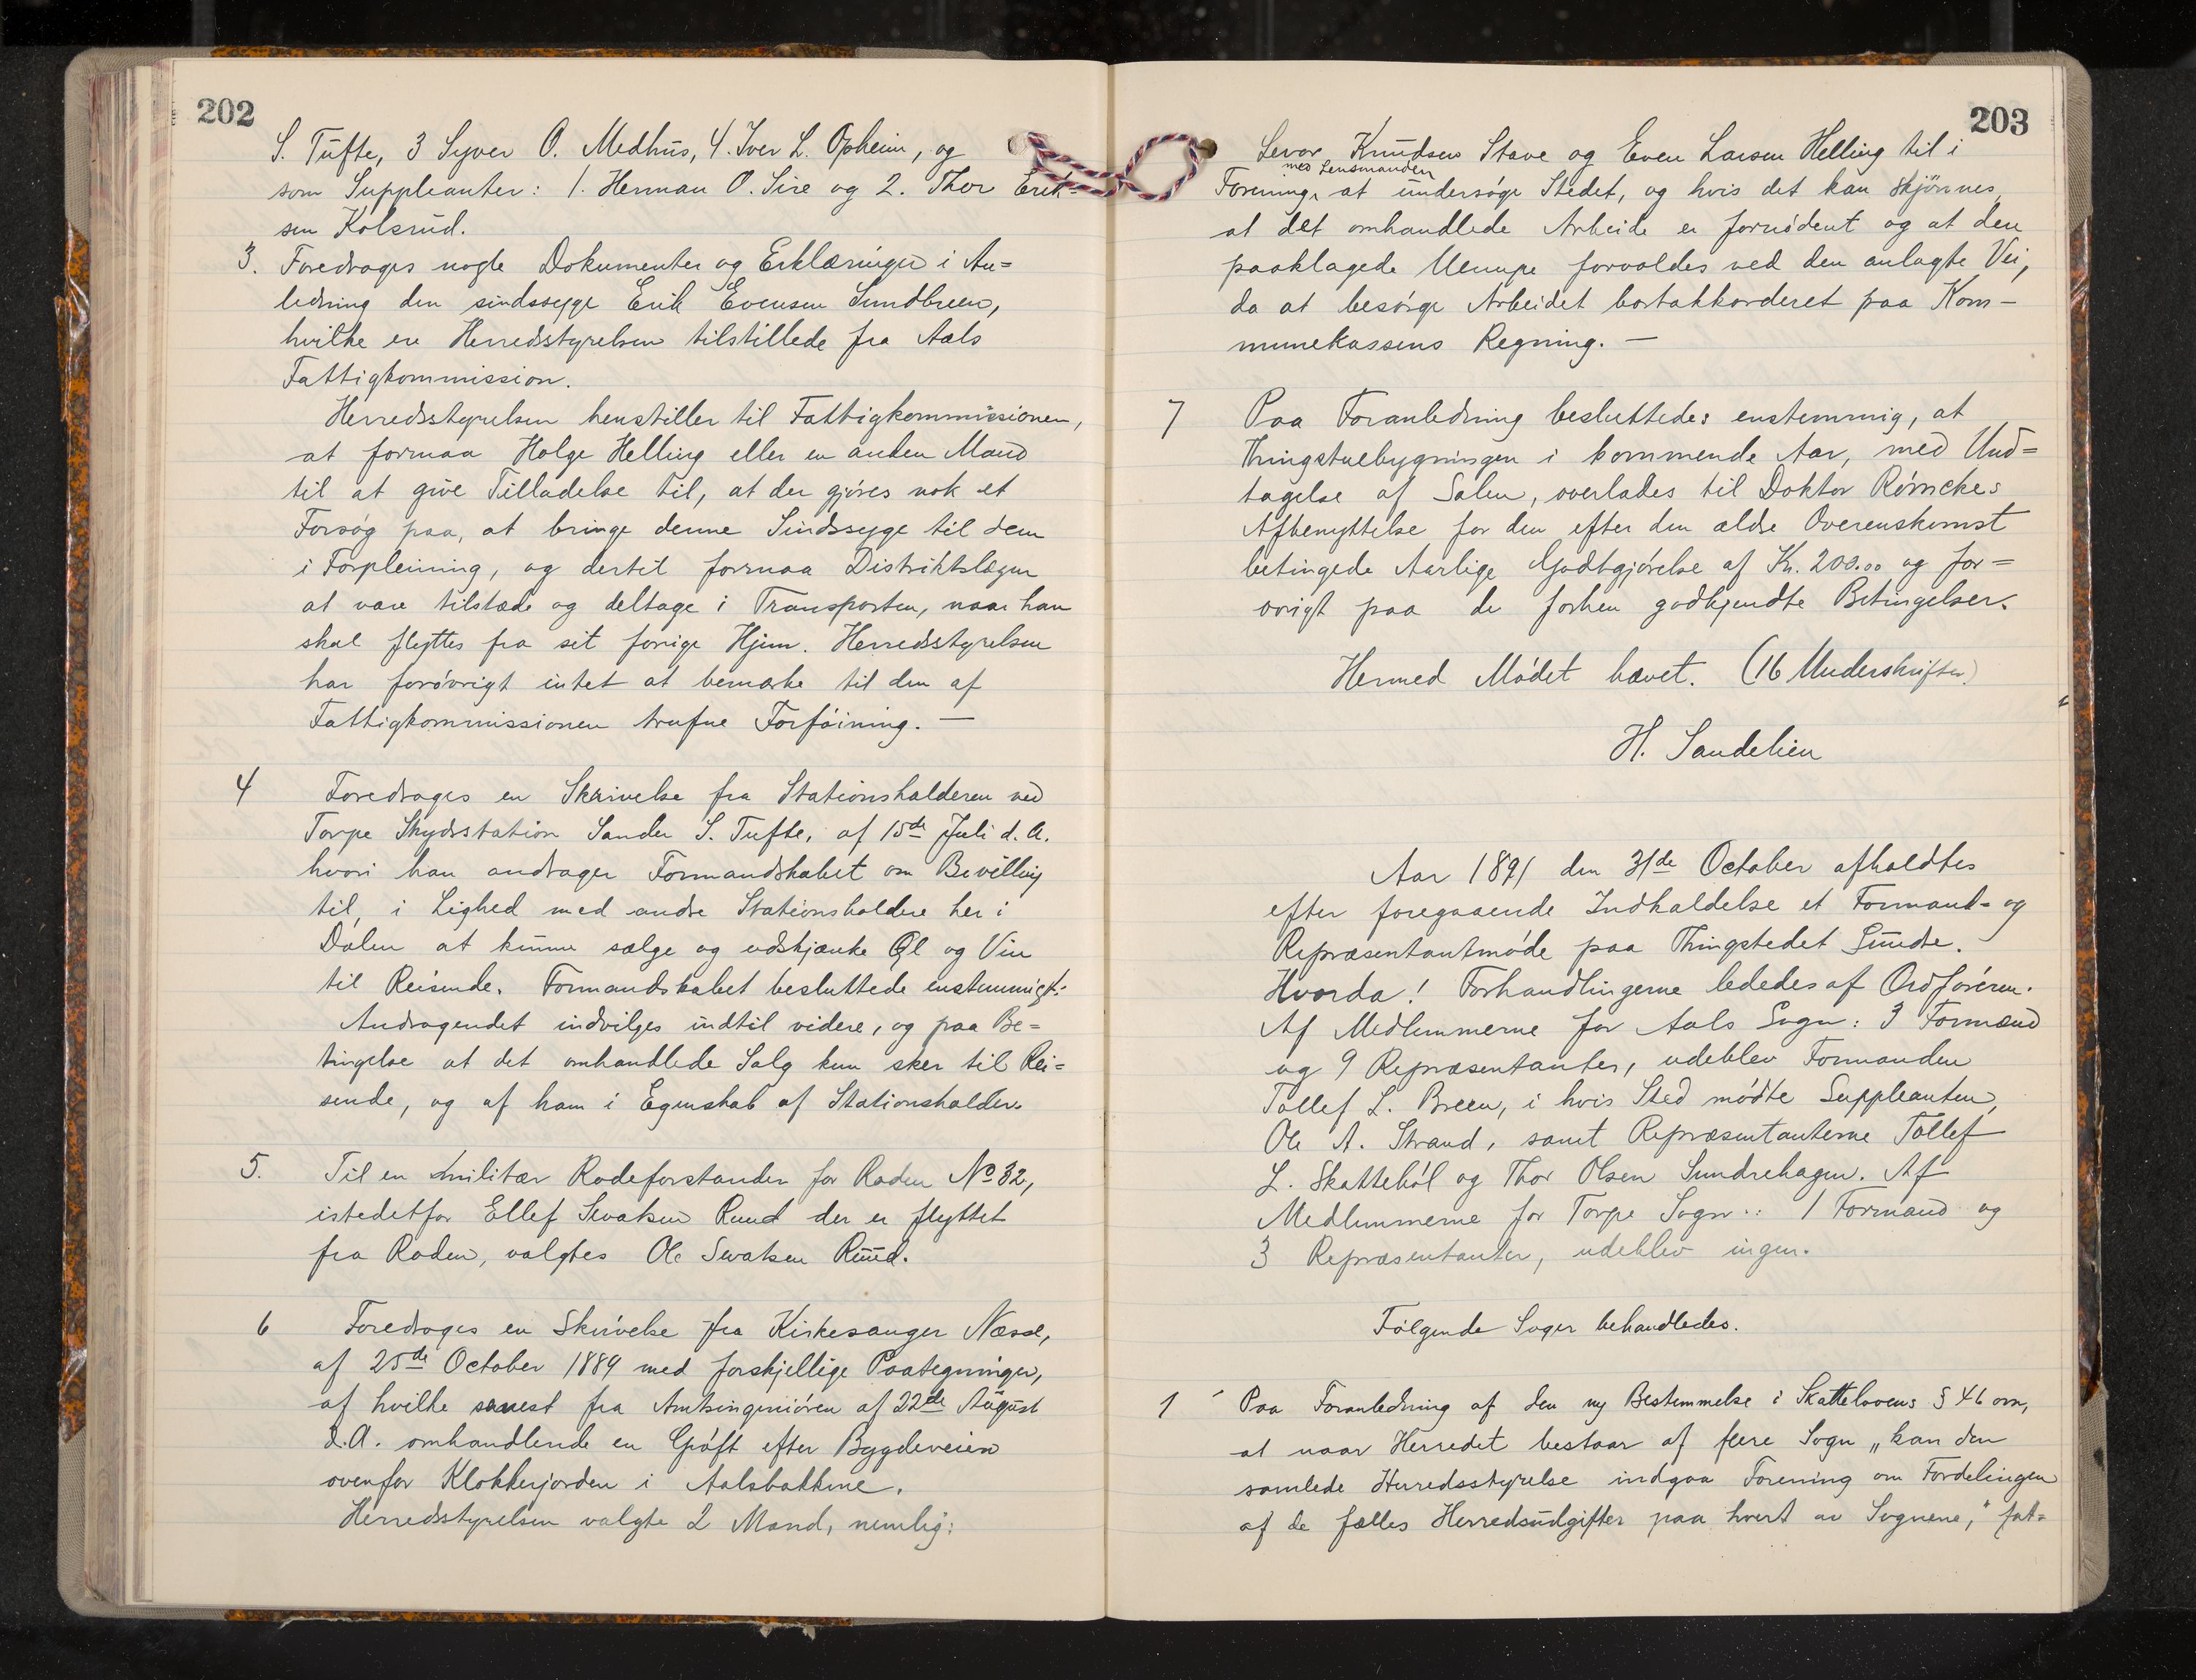 202
S. Tufte, 3 Syver O. Medhus, 4. Iver L. Opheim, og
som Suppleanter: 1. Herman O. Sire og 2. Thor Erik=
sen Kolsrud.
3. Foredroges nogle Dokumenter og Erklæringer i An=
ledning den sindssyge Erik Evensen Sundbreen,
hvilke ere Herredsstyrelsen tilstillede fra Aals
Fattigkommission.
Herredsstyrelsen henstiller til Fattigkommissionen,
at formaa Holge Helling eller en anden Mand
til at give Tilladelse til, at der gjöres nok et
Forsøg paa, at bringe denne Sindssyge til dem
i Forpleining, og dertil formaa Distriktslægen
at være tilstæde og deltage i Transporten, naar han
skal flyttes fra sit forrige Hjem. Herredsstyrelsen
har forövrigt intet at bemærke til den af
Fattigkommissionen trufne Forföining. —
4 Foredroges en Skrivelse fra Stationsholderen ved
Torpe Skydsstation Sander S. Tufte, af 15de Juli d. A.
hvori han andrager Formandskabet om Bevilling
til, i Lighed med andre Stationsholdere her i
Dalen at kunne sælge og udskjænke Øl og Vin
til Reisende. Formandskabet besluttede enstemmigt:
Andragendet indvilges indtil videre, og paa Be=
tingelse at det omhandlede Salg kun sker til Rei=
sende, og af ham i Egenskab af Stationsholder.
5. Til en militær Rodeforstander for Roden No 32,
istedetfor Ellef Sevatsen Ruud der er flyttet
fra Roden, valgtes Ole Sevatsen Ruud.
6 Foredroges en Skrivelse fra Kirkesanger Næsse,
af 25de October 1889 med forskjellige Paategninger,
af hvilke senest fra Amtsingeniören af 22de August
d. A. omhandlende en Gröft efter Bygdeveien
ovenfor Klokkerjorden i Aalsbakkene.
Herredsstyrelsen valgte 2 Mænd, nemlig:
203
Sevar Knudsen Stave og Even Larsen Helling til i
med Lensmanden
Forening, at undersöge Stedet, og hvis det kan skjönnes,
at det omhandlede Arbeide er fornödent og at den
paaklagede Ulempe forvoldes ved den anlagte Vei,
da at besörge Arbeidet bortakkorderet paa Kom-
munekassens Regning. —
7 Paa Foranledning besluttedes enstemmig, at
Thingstuebygningen i kommende Aar, med Und=
tagelse af Salen, overlades til Doktor Römckes
Afbenyttelse for den efter den ældre Overenskomst
betingede Aarlige Godtgjörelse af Kr. 200.00 og for=
övrigt paa de forhen godkjendte Betingelser.
Hermed Mödet hævet. (16 Underskrifter)
H. Sandelien
Aar 1891 den 31de October afholdtes
efter foregaaende Indkaldelse et Formand- og
Repræsentantmöde paa Thingstedet Sundre.
Hvorda! Forhandlingerne lededes af Ordföreren.
Af Medlemmerne for Aals Sogn: 3 Formænd
og 9 Repræsentanter, udeblev Formanden
Tollef L. Breen, i hvis Sted mödte Suppleanten,
Ole A. Strand, samt Repræsentanterne Tollef
L. Skatteböl og Thor Olsen Sundrehagen. Af
Medlemmerne for Torpe Sogn: 1 Formand og
3 Repræsentanter, udeblev ingen.
Fölgende Sager behandledes.
1 Paa Foranledning af den ny Bestemmelse i Skattelovens § 46 om,
at naar Herredet bestaar af flere Sogn „kan den
samlede Herredsstyrelse indgaa Forening om Fordelingen
af de fælles Herredsudgifter paa hvert av Sognene,“ fat=